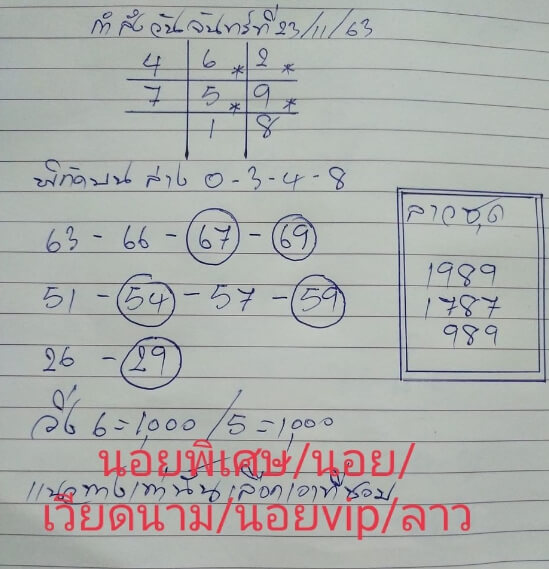 วันจันทร์ที่ 23/11/63
4 6* 2*
7 5* 9*
1 8
พิกัดบน ล่าง 0-3-4-8
63 - 66 - 67 - 69
51 - 54 - 57 - 59
26 - 29
ลาวชุด
1989
1787
989
วิ่ง 6=1,000 / 5=1,000
นอยพิเศษ/นอย/
แนวทางเท่านั้น เลือกเอาที่ชอบ
เวียดนาม/นอยvip/ลาว